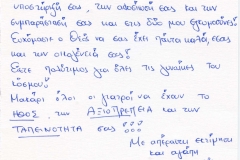 υποστήριξή σας, την απόδοσή σας και την
συμπαράσταση σας και στις δύο μου εγχειρήσεις!
Εύχομαι ο Θεός να σας έχει πάντα καλά, εσάς
και την οικογένειά σας!
Είστε πολύτιμος για όλες τις γυναίκες του
κόσμου!
Μακάρι όλοι οι γιατροί να είχαν το
ΗΘΟΣ, την ΑΞΙΟΠΡΕΠΕΙΑ και την
ΤΑΠΕΙΝΟΤΗΤΑ σας !!!
Με απέραντη εκτίμηση
και αγάπη